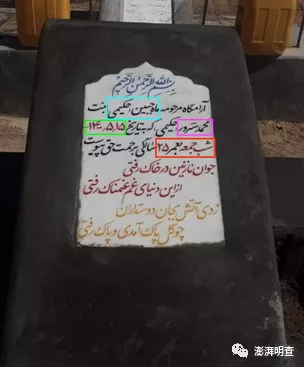 بسم الله الرحمن الرحیم
آرامگاه مرحومه ماه جبین "حکیمی" بنت
محمد سرور "حکیمی" که بتاریخ ۱۴۰۰،۵،۱۵
شب جمعه بعمر ۲۵ سالگی برحمت حق پیوست
جوان نازنین در خاک رفتی
ازین دنیای غم غمناک رفتی
زدی آتش بجان دوستداران
چو گل پاک آمدی و پاک رفتی
澎湃明查